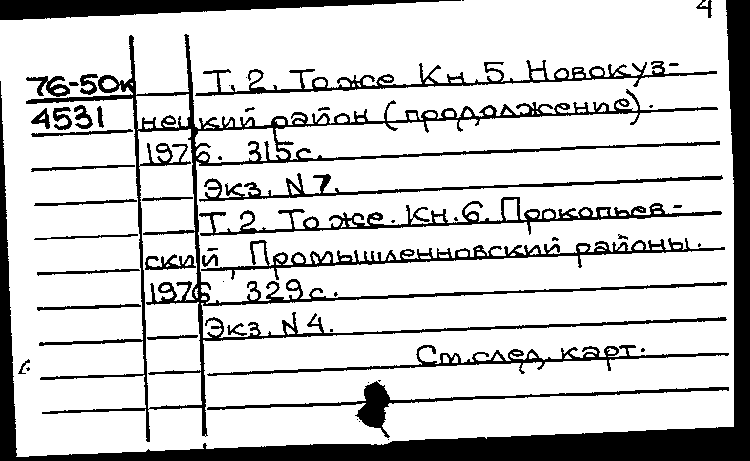 4
76-50к Т. 2. То же. Кн. 5. Новокуз-
4531 нецкий район (продолжение).
1976. 315с.
Экз. N 7.
Т. 2. То же. Кн. 6. Прокопьев-
ский, Промышленновский районы.
1976. 329с.
Экз. N 4.
См. след. карт.